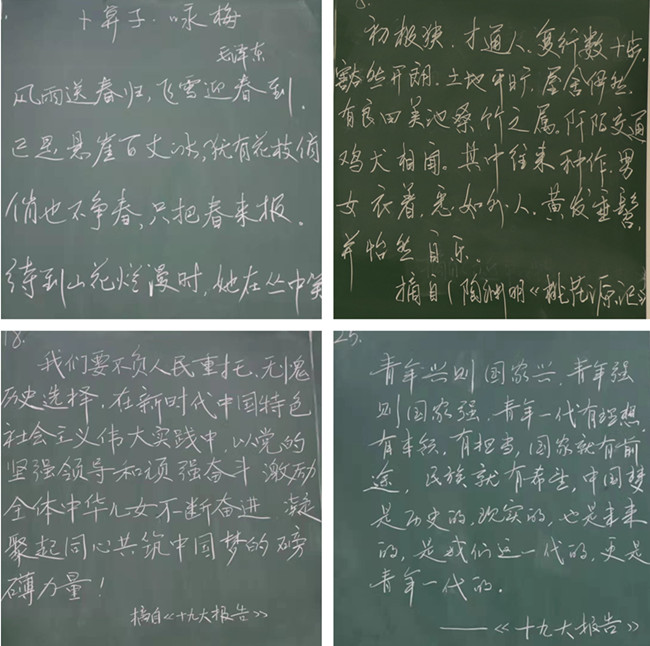 卜算子·咏梅
毛泽东
风雨送春归,飞雪迎春到.
已是悬崖百丈冰,犹有花枝俏
俏也不争春,只把春来报.
待到山花烂漫时,她在丛中笑
初极狭,才通人,复行数十步,
豁然开朗.土地平旷,屋舍俨然.
有良田美池桑竹之属,阡陌交通
鸡犬相闻.其中往来种作,男
女衣着,悉如外人.黄发垂髫,
并怡然自乐.
摘自(陶渊明《桃花源记》
18.
我们要不负人民重托,无愧
历史选择,在新时代中国特色
社会主义伟大实践中,以党的
坚强领导和顽强奋斗 激励
全体中华儿女不断奋进 凝
聚起同心共筑中国梦的磅
礴力量!
摘自《十九大报告》
25.
青年兴则国家兴,青年强
则国家强.青年一代有理想
有本领,有担当,国家就有前
途,民族就有希望,中国梦
是历史的,现实的,也是未来
的,是我们这一代的,更是
青年一代的.
——《十九大报告》